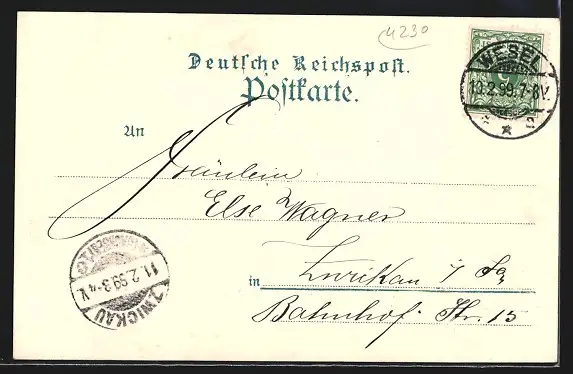 4230
Deutsche Reichspost.
Postkarte.
WESEL
10.2.99.7-8V.
An
Fräulein
Else Wagner
in Zwickau i/ Sa.
Bahnhof. Str. 15
11.2.99.3-4V.
ZWICKAU